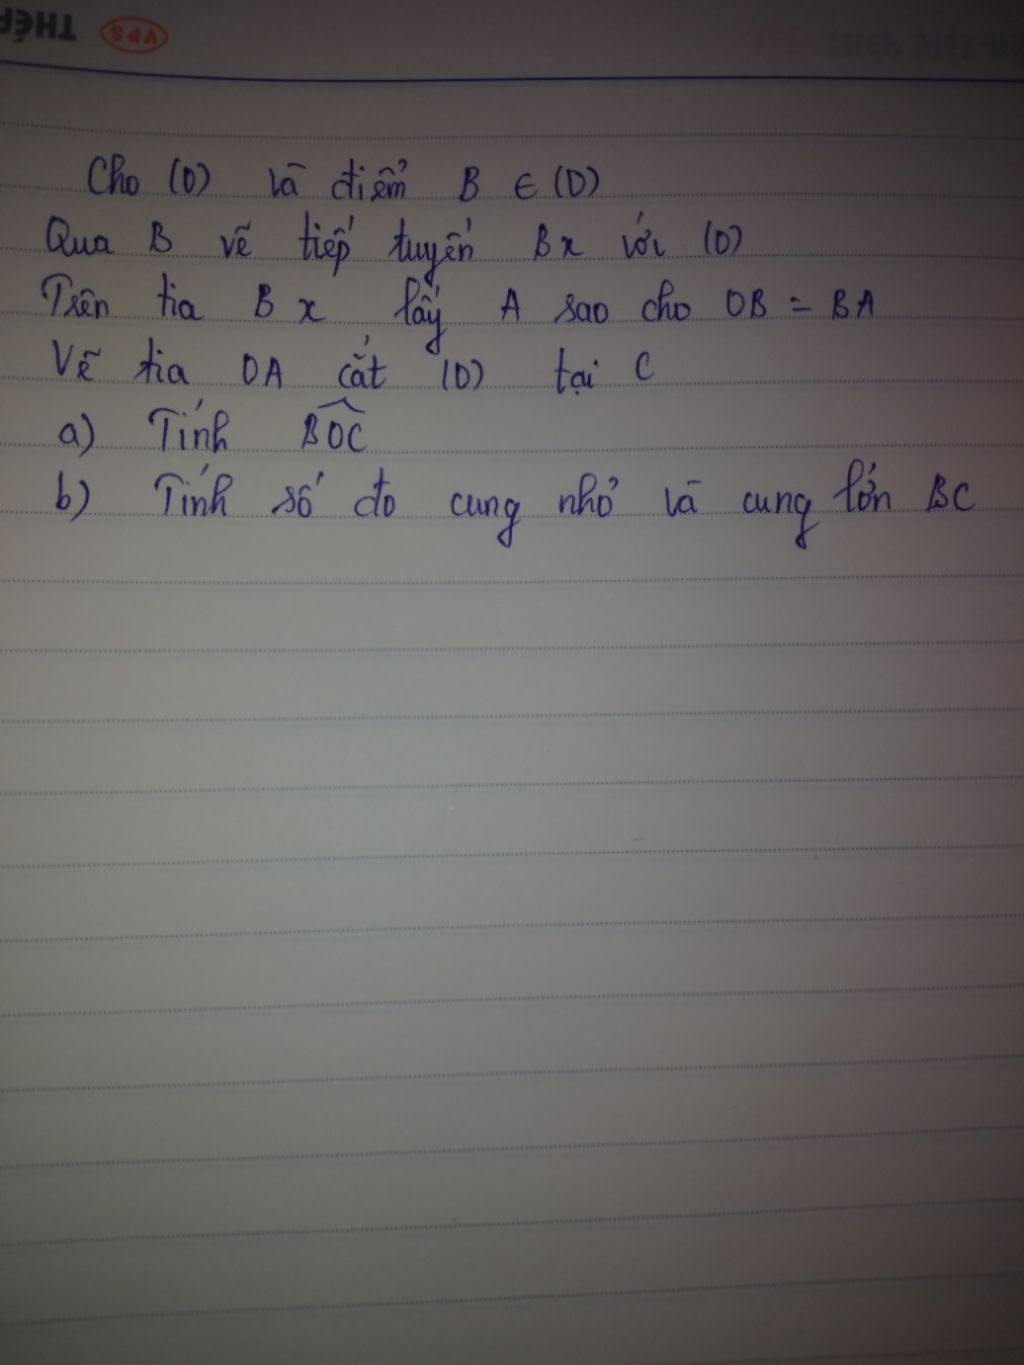 THÉP VPS
Cho (O) và điểm B ∈ (O)
Qua B vẽ tiếp tuyến Bx với (O)
Trên tia Bx lấy A sao cho OB = BA
Vẽ tia OA cắt (O) tại C
a) Tính BOC
b) Tính số đo cung nhỏ và cung lớn BC